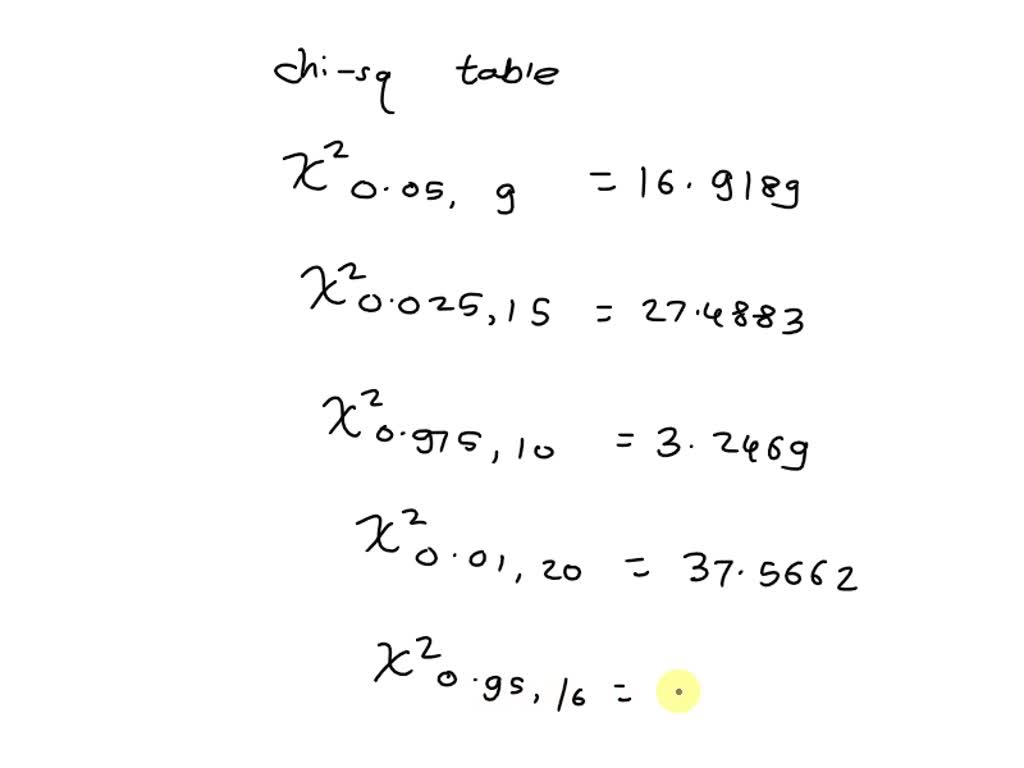 chi-sq table
χ²0.05, 9 = 16.9189
χ²0.025, 15 = 27.4883
χ²0.975, 10 = 3.2469
χ²0.01, 20 = 37.5662
χ²0.95, 16 =